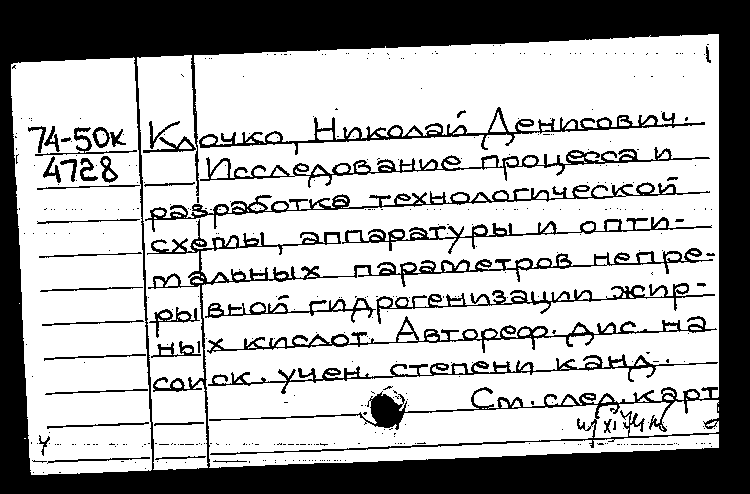 1
74-50к Клочко, Николай Денисович.
4728 Исследование процесса и
разработка технологической
схемы, аппаратуры и опти-
мальных параметров непре-
рывной гидрогенизации жир-
ных кислот. Автореф. дис. на
соиск. учен. степени канд.
См. след. карт